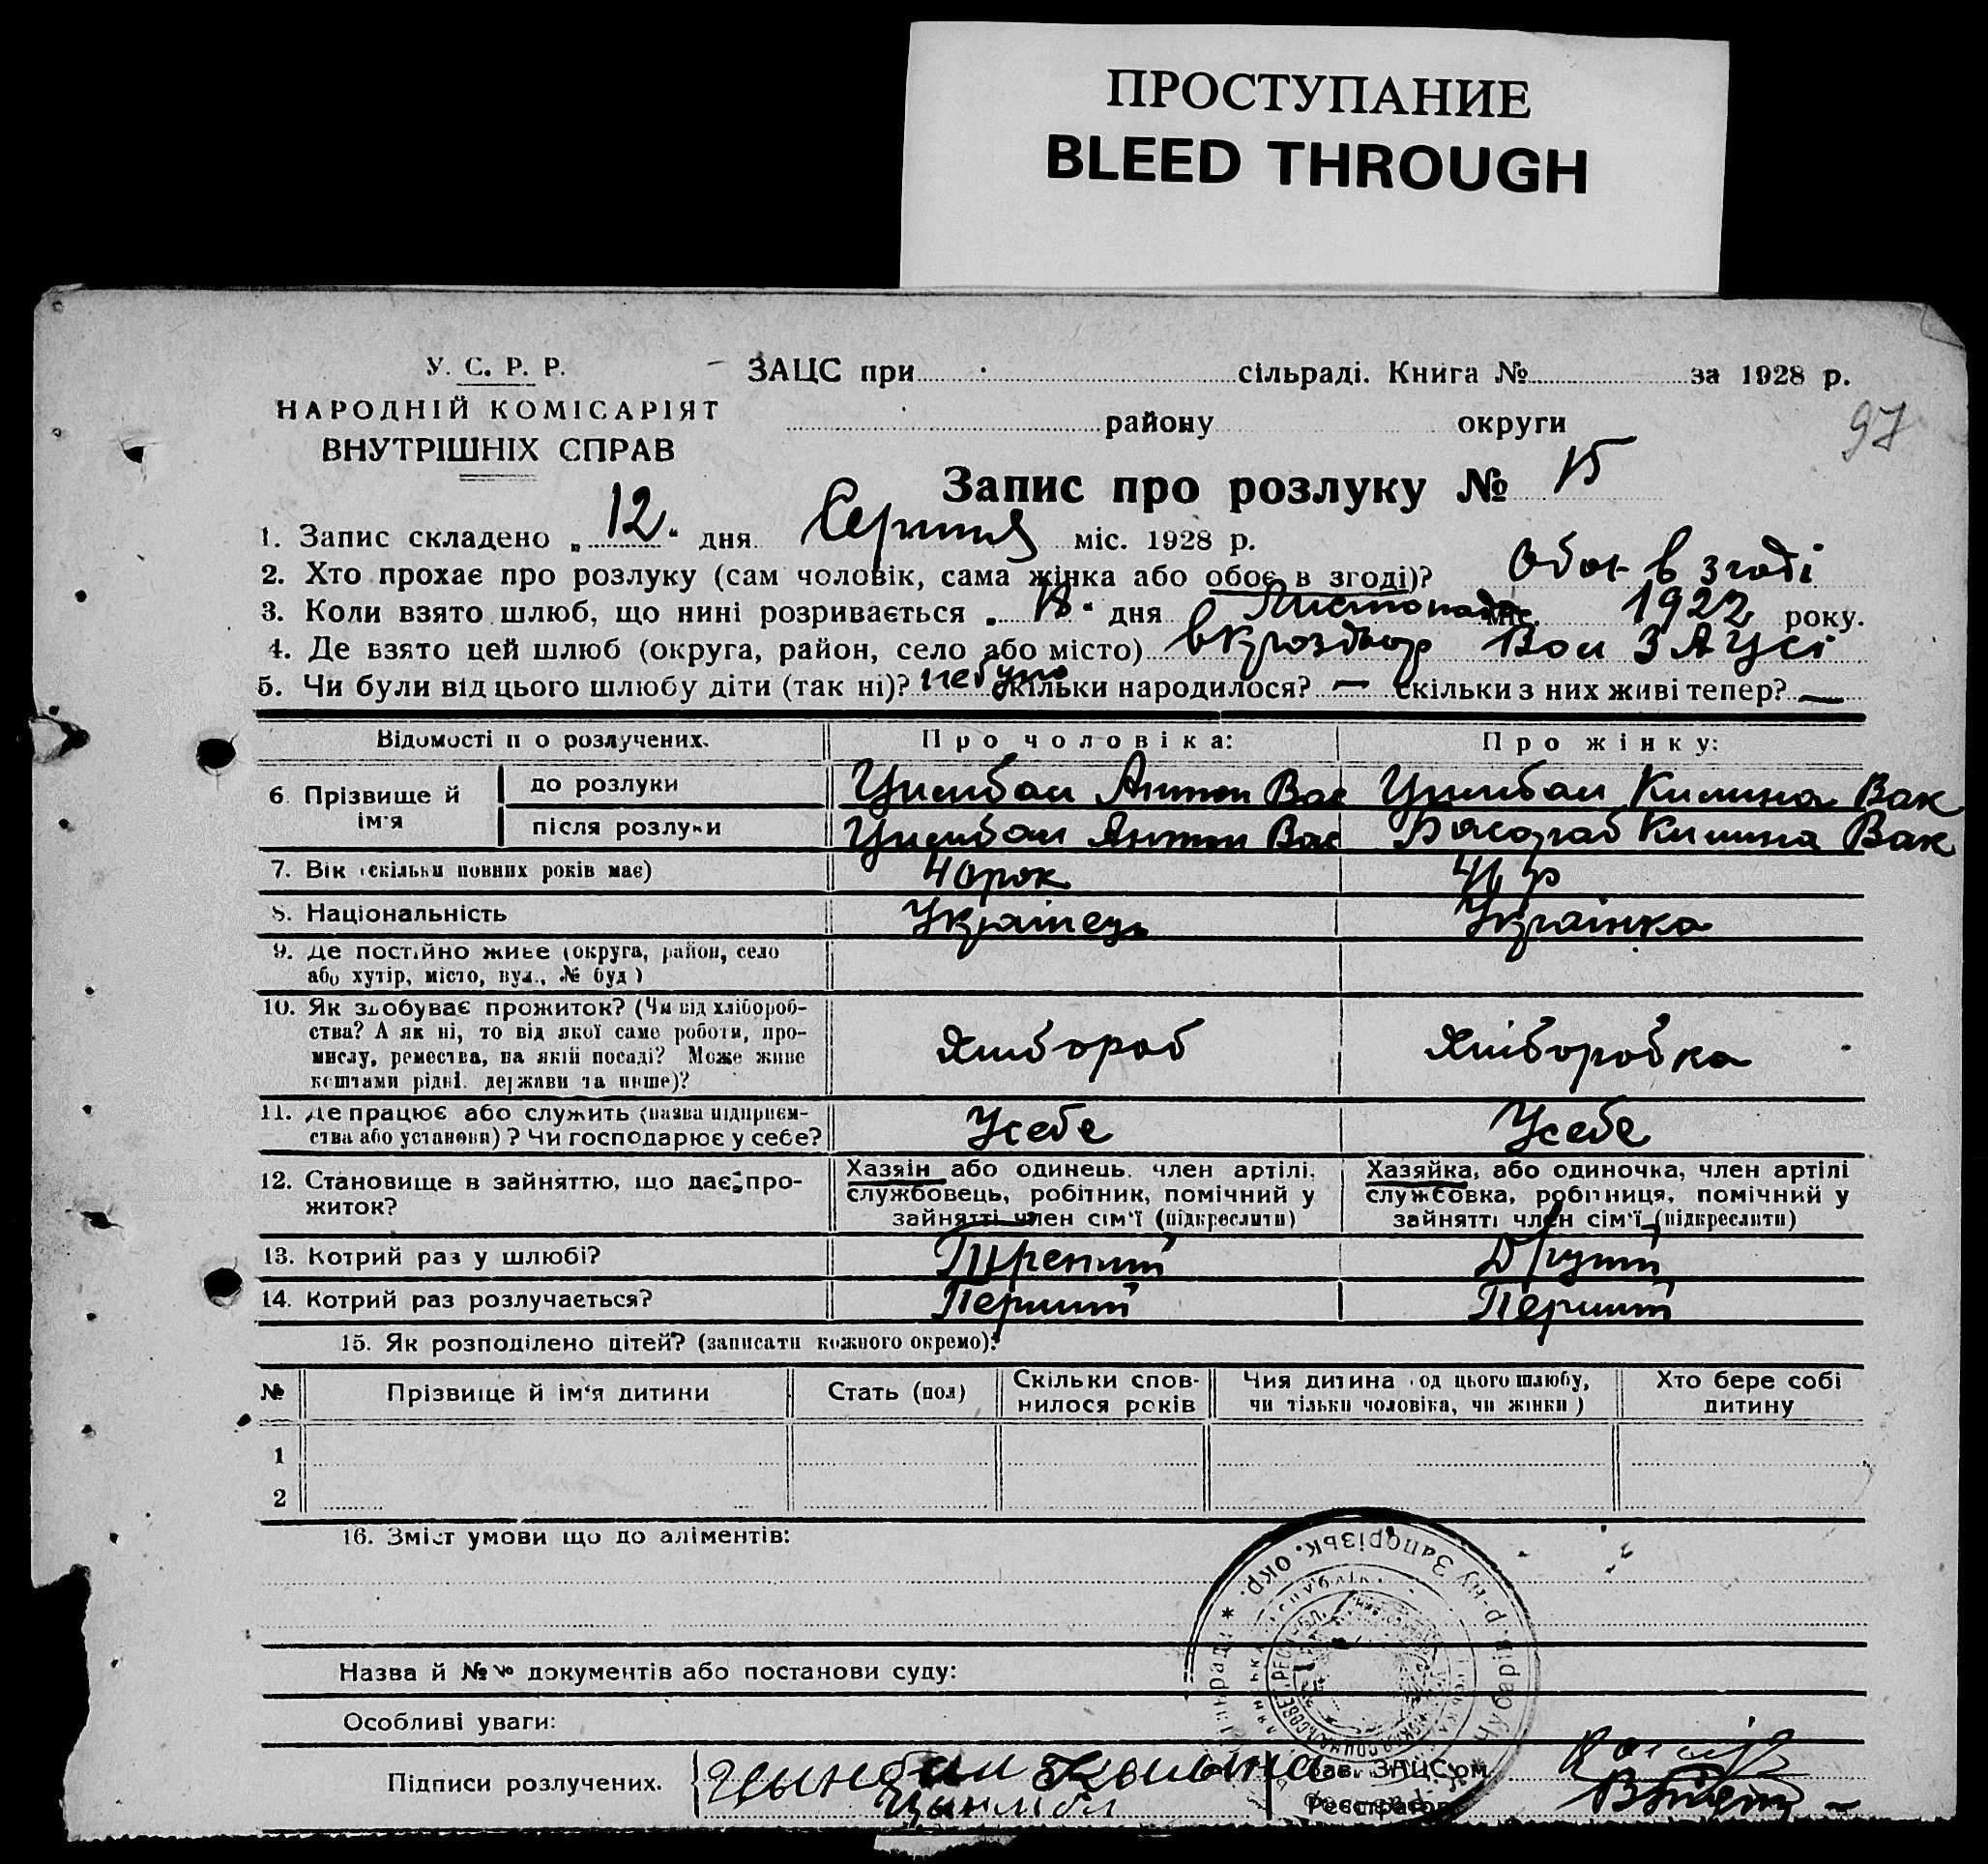 ПРОСТУПАНИЕ
BLEED THROUGH
У. С. Р. Р.
ЗАЦС при сільраді. Книга № за 1928 р.
НАРОДНІЙ КОМІСАРІЯТ
району округи
97
ВНУТРІШНІХ СПРАВ
Запис про розлуку № 15
1. Запис складено „12“ дня Серпня міс. 1928 р.
2. Хто прохає про розлуку (сам чоловік, сама жінка або обоє в згоді)? Обоє в згоді
3. Коли взято шлюб, що нині розривається „ “ дня Листопада міс. 1922 року.
4. Де взято цей шлюб (округа, район, село або місто) Вол ЗАЦСі
5. Чи були від цього шлюбу діти (так ні)? небуло скільки народилося? — скільки з них живі тепер? —
Відомості п о розлучених.
Про чоловіка:
Про жінку:
6. Прізвище й ім'я
до розлуки
Цимбал Антон Вас
Цимбал Килина Вак
після розлуки
Цимбал Антон Вас
Килина Вак
7. Вік (скільки повних років має)
40 рок
41 р
8. Національність
Українець
Українка
9. Де постійно живе (округа, район, село
або хутір, місто, вул., № буд)
10. Як здобуває прожиток? (Чи від хлібороб-
ства? А як ні, то від якої саме роботи, про-
мислу, ремества, на якій посаді? Може живе
коштами рідні. держави та инше)?
Хлібороб
Хліборобка
11. Де працює або служить (назва підприєм-
ства або установи)? Чи господарює у себе?
Усебе
Усебе
12. Становище в зайняттю, що дає про-
житок?
Хазяїн або одинець. член артілі,
службовець, робітник, помічний у
зайнятті член сім'ї (підкреслити)
Хазяйка, або одиночка, член артілі
службовка, робітниця, помічний у
зайнятті член сім'ї (підкреслити)
13. Котрий раз у шлюбі?
Третий
Другий
14. Котрий раз розлучається?
Перший
Перший
15. Як розподілено дітей? (записати кожного окремо):
№
Прізвище й ім'я дитини
Стать (пол)
Скільки спов-
нилося років
Чия дитина (од цього шлюбу,
чи тільки чоловіка, чи жінки)
Хто бере собі
дитину
1
2
16. Зміст умови що до аліментів:
Чубарів. р-ну Запорізьк. окр.
Назва й №№ документів або постанови суду:
Особливі уваги:
Підписи розлучених.
Зав. ЗАЦС'ом
Реєстратор